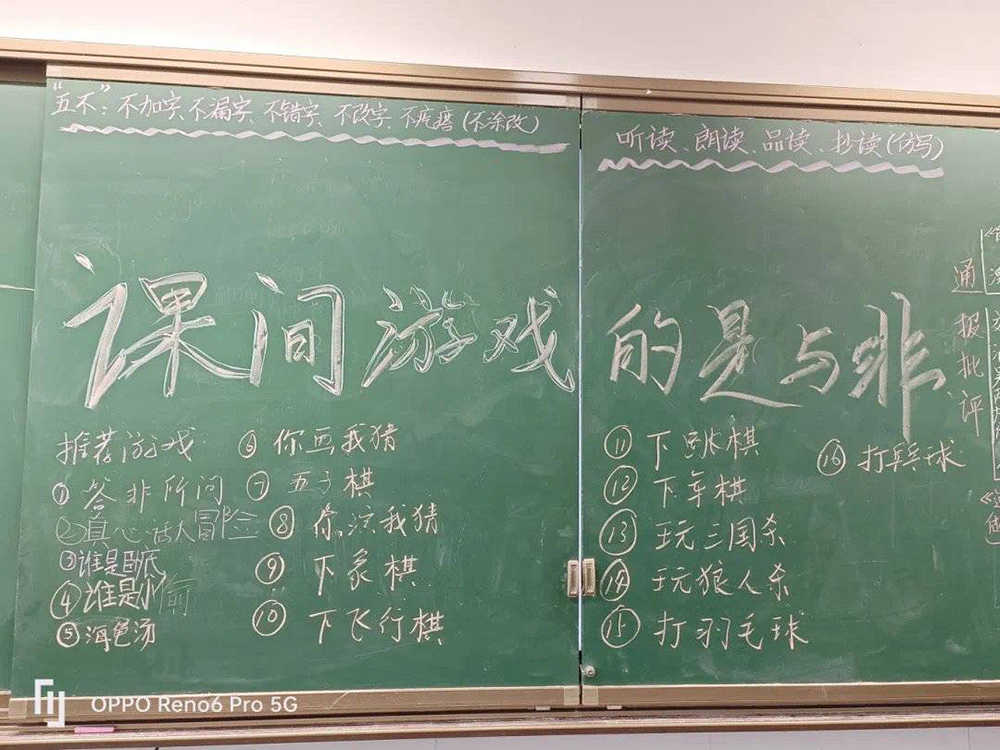 “五不”：不加字、不漏字、不错字、不改字、不疙瘩(不涂改)
听读、朗读、品读、抄读(仿写)
课间游戏的是与非
推荐游戏
①答非所问
②真心话大冒险
③谁是卧底
④谁是小偷
⑤海龟汤
⑥你画我猜
⑦五子棋
⑧你演我猜
⑨下象棋
⑩下飞行棋
⑪下跳棋
⑫下军棋
⑬玩三国杀
⑭玩狼人杀
⑮打羽毛球
⑯打乒乓球
通报批评
OPPO Reno6 Pro 5G